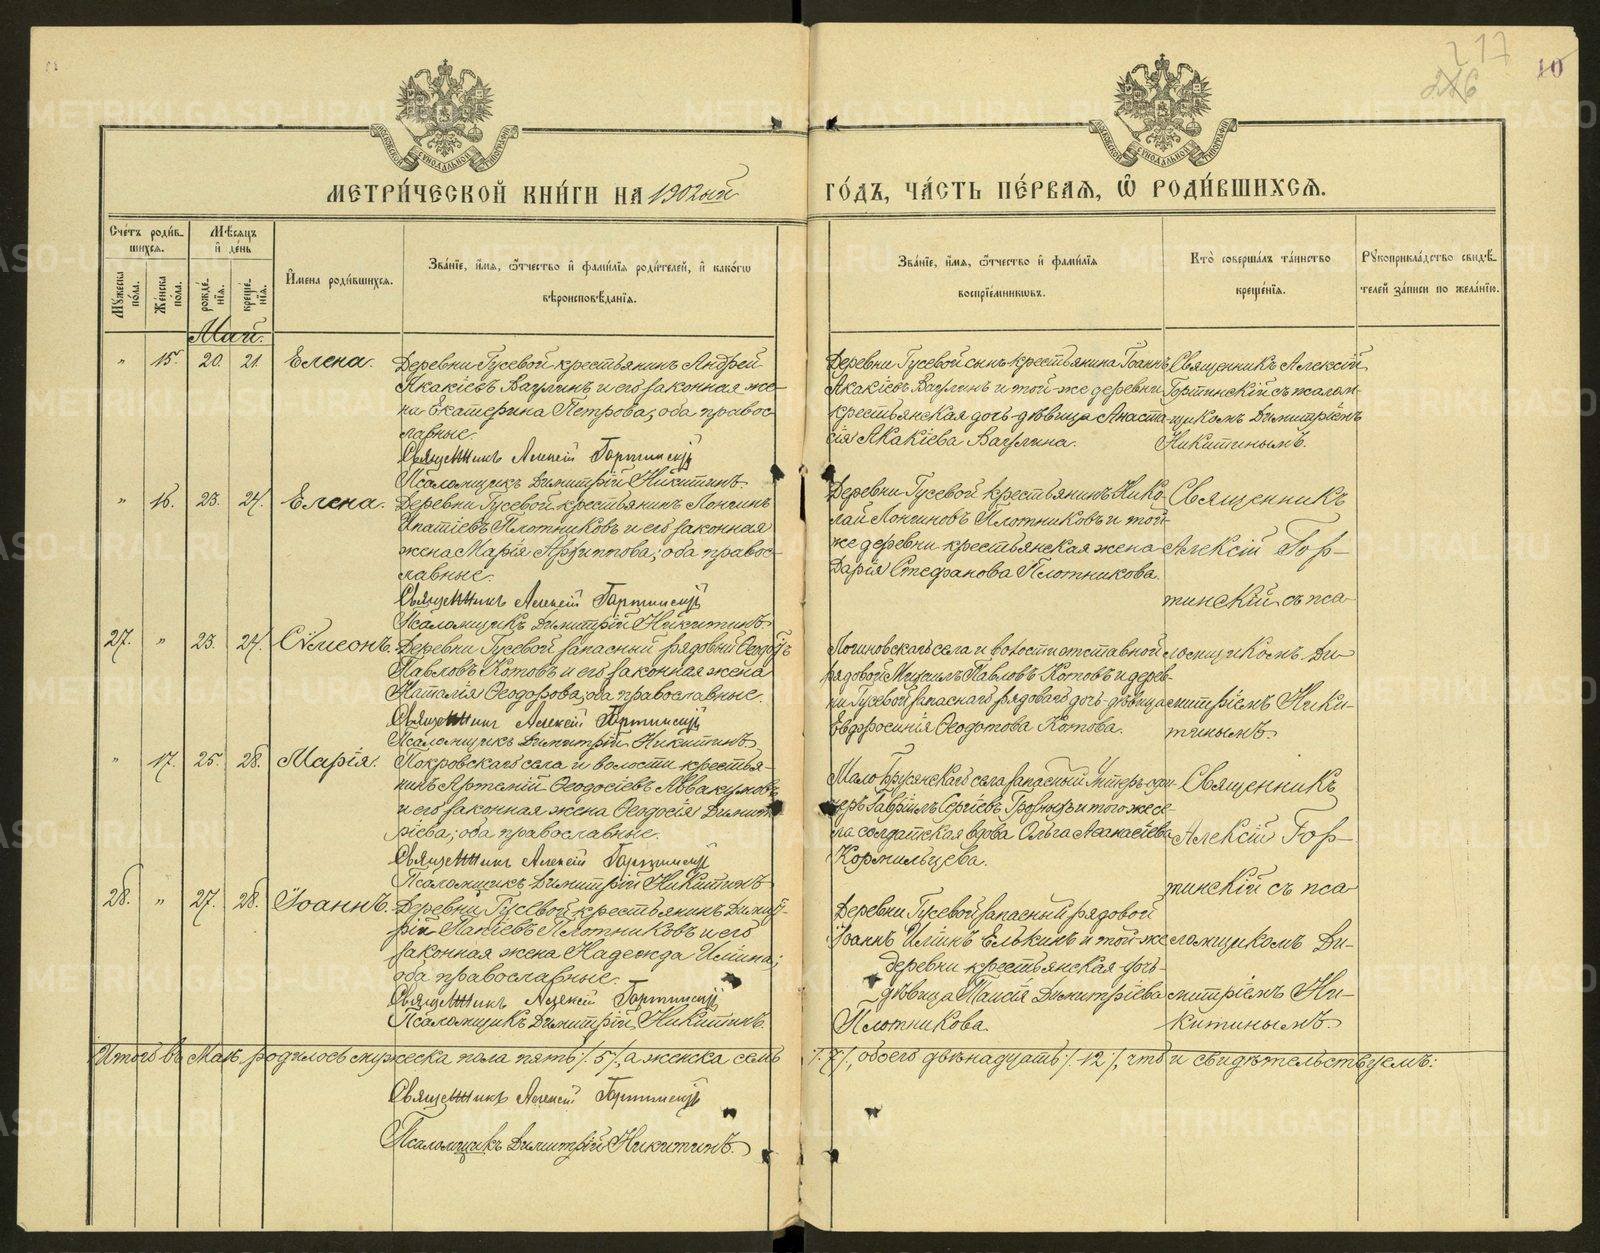 217
246
10
МЕТРИ́ЧЕСКОЙ КНИ́ГИ НА 1902ый
ГО́ДЪ, ЧА́СТЬ ПЕ́РВАЯ, Ѿ РОДИ́ВШИХСЯ.
Сче́тъ роди́в-
шихся.
Мѣ́сяцъ
и҆ де́нь
Му́жеска по́ла.
Же́нска по́ла.
рожде́-нїя.
креще́-нїя.
И҆мена роди́вшихся.
Зва́нїе, и҆́мя, ѻ҆́тчество и҆ фами́лїя роди́телей, и҆ како́гѡ
вѣроисповѣ́данїя.
Зва́нїе, и҆́мя, ѻ҆́тчество и҆ фами́лїя
воспрїе́мникѡвъ.
Кто̀ соверша́лъ та́инство
креще́нїя.
Рукоприкла́дство свидѣ́-
телей за́писи по жела́нїю.
Май.
" 15. 20. 21. Елена.
Деревни Гусевой крестьянинъ Андрей
Акакіевъ Ваулинъ и его законная же-
на Екатерина Петрова, оба правос-
лавные.
Священникъ Алексій Гортинскій
Псаломщикъ Димитрій Никитинъ
Деревни Гусевой сынъ крестьянина Іоаннъ
Акакіевъ Ваулинъ и той же деревни
крестьянская дочь дѣвица Анаста-
сія Акакіева Ваулина.
Священникъ Алексій
Гортинскій съ псалом-
щикомъ Димитріемъ
Никитинымъ.
" 16. 23. 24. Елена.
Деревни Гусевой крестьянинъ Лонгинъ
Ипатіевъ Плотниковъ и его законная
жена Марія Архиппова; оба правос-
лавные.
Священникъ Алексій Гортинскій
Псаломщикъ Димитрій Никитинъ
Деревни Гусевой крестьянинъ Нико-
лай Лонгиновъ Плотниковъ и той-
же деревни крестьянская жена
Дарія Стефанова Плотникова.
Священникъ
Алексій Гор-
тинскій съ пса-
27. " 23. 24. Сѵмеонъ.
Деревни Гусевой запасный рядовой Ѳеодотъ
Павловъ Котовъ и его законная жена
Наталія Ѳеодорова, оба православные.
Священникъ Алексій Гортинскій
Псаломщикъ Димитрій Никитинъ
Логиновскаго села и волости отставной
рядовой Михаилъ Павловъ Котовъ и дерев-
ни Гусевой запаснаго рядоваго дочь дѣвица
Евфросинія Ѳеодотова Котова.
ломщикомъ Ди-
митріемъ Ники-
тинымъ.
" 17. 25. 28. Марія.
Покровскаго села и волости крестья-
нинъ Артемій Ѳеодосіевъ Аввакумовъ
и его законная жена Ѳеодосія Димит-
ріева; оба православные.
Священникъ Алексій Гортинскій
Псаломщикъ Димитрій Никитинъ
Мало-Брусянскаго села запасный Унтеръ офи-
церъ Гавріилъ Сергіевъ и того же се-
ла солдатская вдова Ольга Аѳанасіева
Кормильцева.
Священникъ
Алексій Гор-
тинскій съ пса-
28. " 27. 28. Іоаннъ.
Деревни Гусевой крестьянинъ Димит-
рій Плотниковъ и его
законная жена Надежда Иліина;
оба православные.
Священникъ Алексій Гортинскій
Псаломщикъ Димитрій Никитинъ.
Деревни Гусевой запасный рядовой
Іоаннъ Иліинъ Елькинъ и той-же
деревни крестьянская дочь
дѣвица Таисія Димитріева
Плотникова.
ломщикомъ Ди-
митріемъ Ни-
китинымъ.
Итого въ Маѣ родилось мужеска пола пять /. 5 /, а женска семь /. 7 /, обоего двѣнадцать /. 12 /, что и свидѣтельствуемъ:
Священникъ Алексій Гортинскій
Псаломщикъ Димитрій Никитинъ.